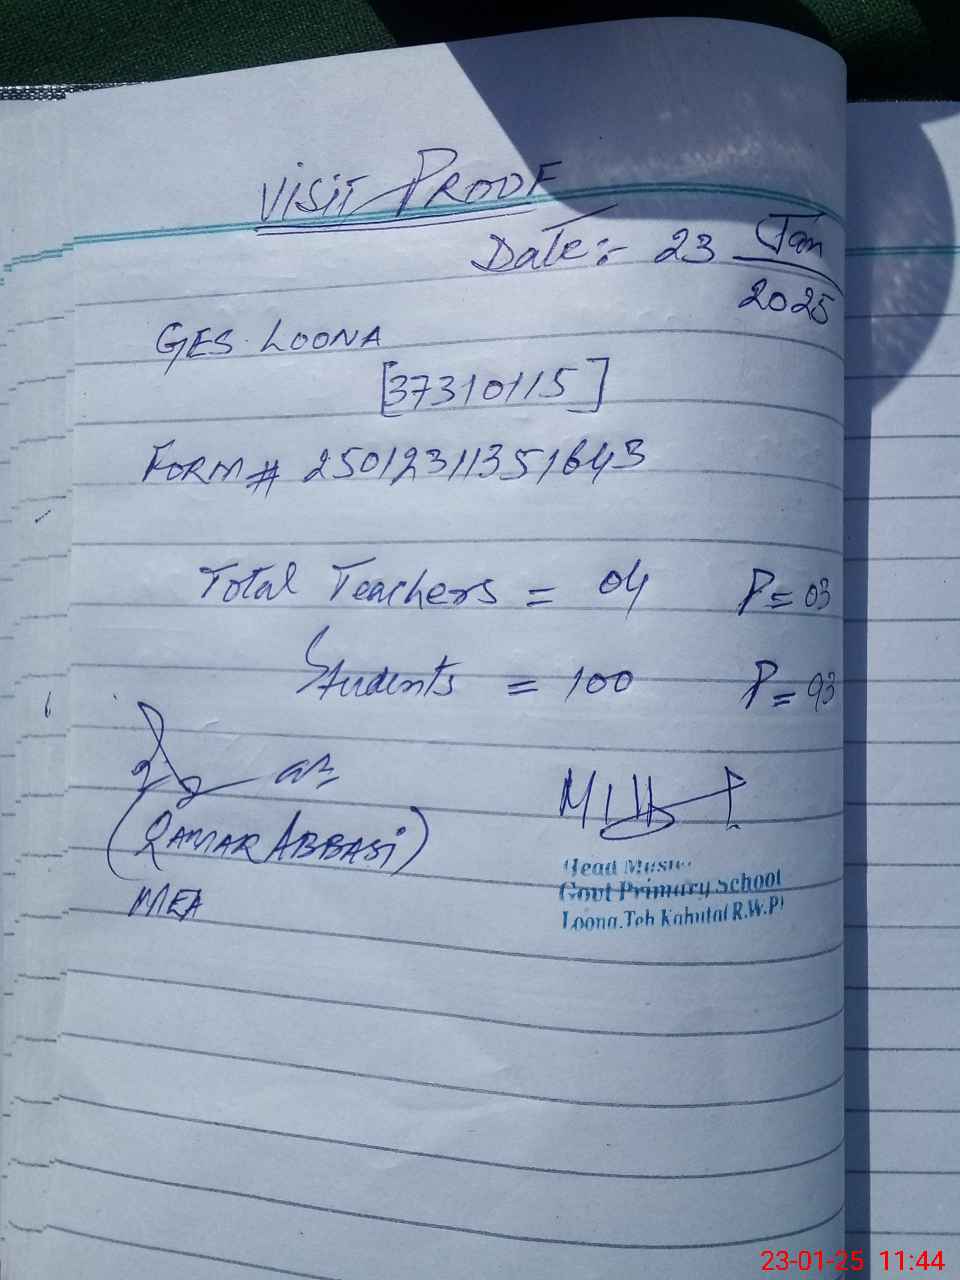 VISIT PROOF
Date:- 23 Jan
2025
GES. LOONA
[37310115]
FORM # 25012311351643
Total Teachers = 04 P = 03
Students = 100 P = 93
(QAMAR ABBASI)
MEA
Head
Govt Primary School
Loona. Teh Kahuta( R.W.P)
23-01-25 11:44